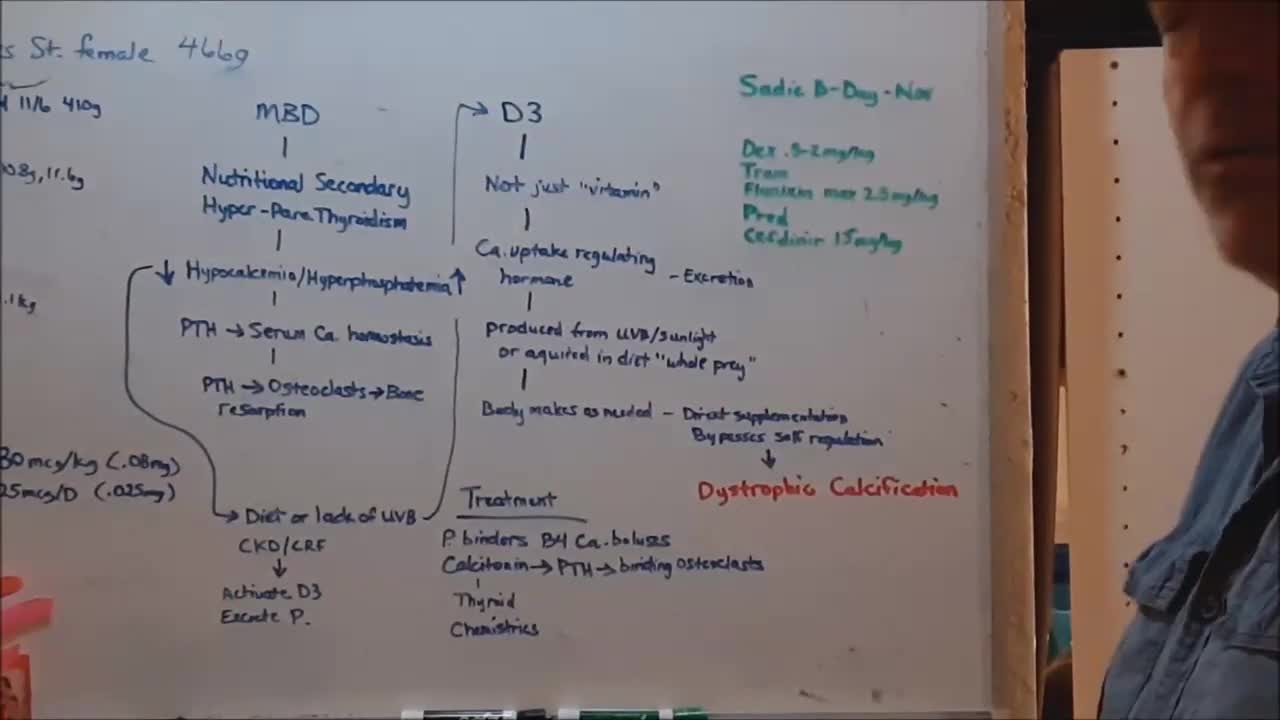 s St. female 466g
11/6 410g
08g, 11.6g
.1kg
30 mcg/kg (.08mg)
25mcg/D (.025mg)
MBD
Nutritional Secondary
Hyper-ParaThyroidism
↓ Hypocalcemia/Hyperphosphatemia ↑
PTH → Serum Ca. homostasis
PTH → Osteoclasts → Bone
resorption
→ Diet or lack of UVB
CKD/CRF
↓
Activate D3
Excrete P.
→ D3
Not just "vitamin"
Ca. uptake regulating
hormone
- Excretion
produced from UVB/sunlight
or aquired in diet "whole prey"
Body makes as needed - Direct supplementation
Bypasses self regulation
↓
Dystrophic Calcification
Treatment
P. binders B4 Ca. boluses
Calcitonin → PTH → binding osteoclasts
Thyroid
Chemistries
Sadie B-Day-Nov
Dex .5-2mg/kg
Tram
max 2.5mg/kg
Pred
Cefdinir 15mg/kg